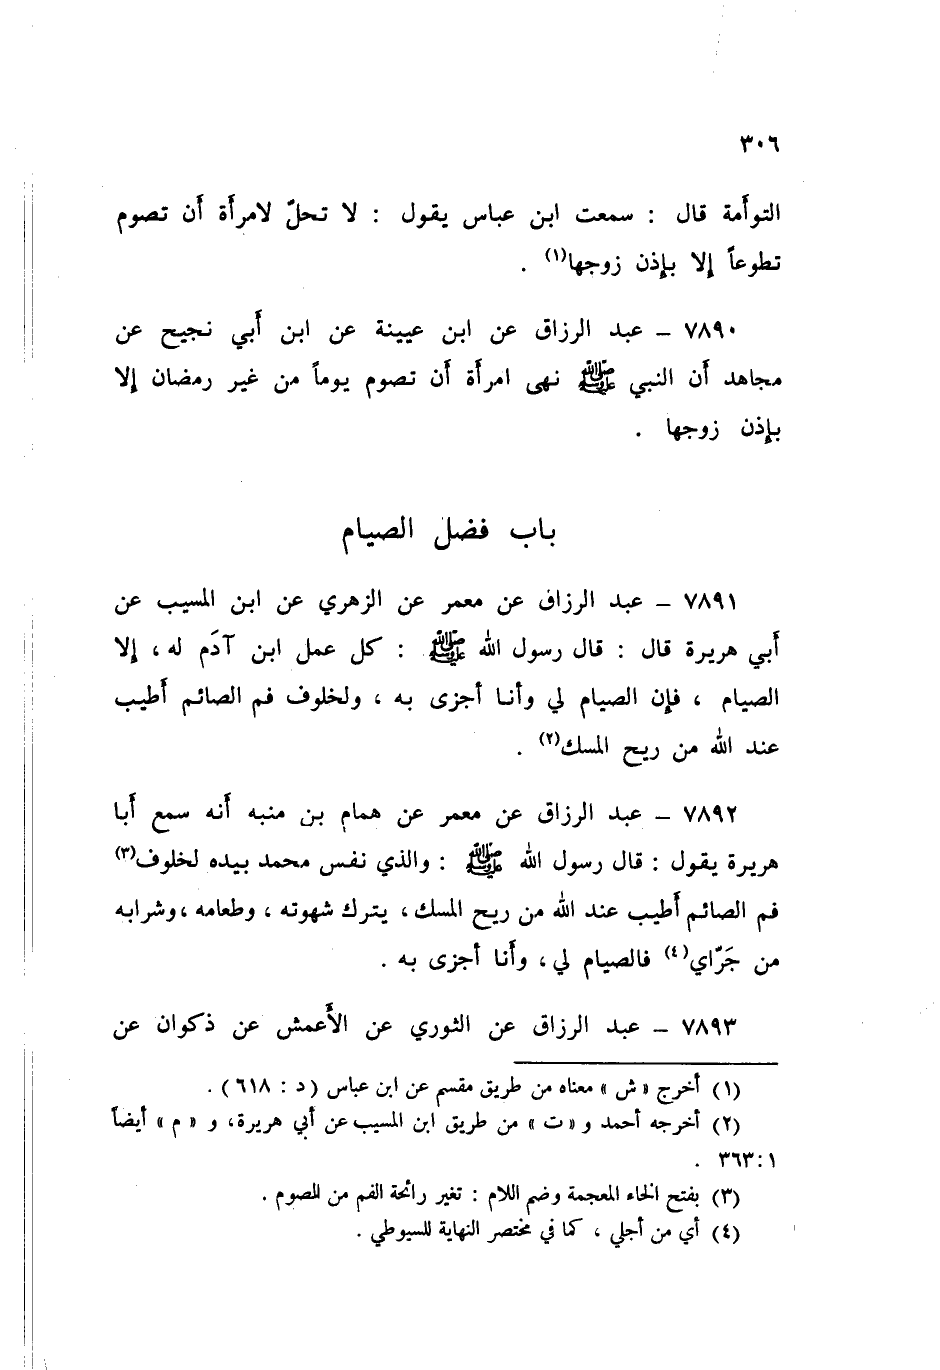 ٣٠٦
التوأَمة قال : سمعت ابن عباس يقول : لا تحلّ لامرأَة أَن تصوم
تطوعاً إِلا بإِذن زوجها(١) .
٧٨٩٠ – عبد الرزاق عن ابن عيينة عن ابن أَبي نجيح عن
مجاهد أَن النبي ﷺ نهى امرأَة أَن تصوم يوماً من غير رمضان إِلا
بإِذن زوجها .
باب فضل الصيام
٧٨٩١ – عبد الرزاق عن معمر عن الزهري عن ابن المسيب عن
أَبي هريرة قال : قال رسول الله ﷺ : كل عمل ابن آدَم له ، إِلا
الصيام ، فإِن الصيام لي وأَنا أَجزى به ، ولخلوف فم الصائم أَطيب
عند الله من ريح المسك(٢) .
٧٨٩٢ – عبد الرزاق عن معمر عن همام بن منبه أَنه سمع أَبا
هريرة يقول : قال رسول الله ﷺ : والذي نفس محمد بيده لخلوف(٣)
فم الصائم أَطيب عند الله من ريح المسك ، يترك شهوته ، وطعامه ، وشرابه
من جَرّاي(٤) فالصيام لي ، وأَنا أَجزى به .
٧٨٩٣ – عبد الرزاق عن الثوري عن الأَعمش عن ذكوان عن
(١) أخرج « ش » معناه من طريق مقسم عن ابن عباس (د : ٦١٨) .
(٢) أخرجه أحمد و « ت » من طريق ابن المسيب عن أبي هريرة، و « م » أيضاً
١ : ٣٦٣ .
(٣) بفتح الخاء المعجمة وضم اللام : تغير رائحة الفم من الصوم .
(٤) أي من أجلي ، كما في مختصر النهاية للسيوطي .